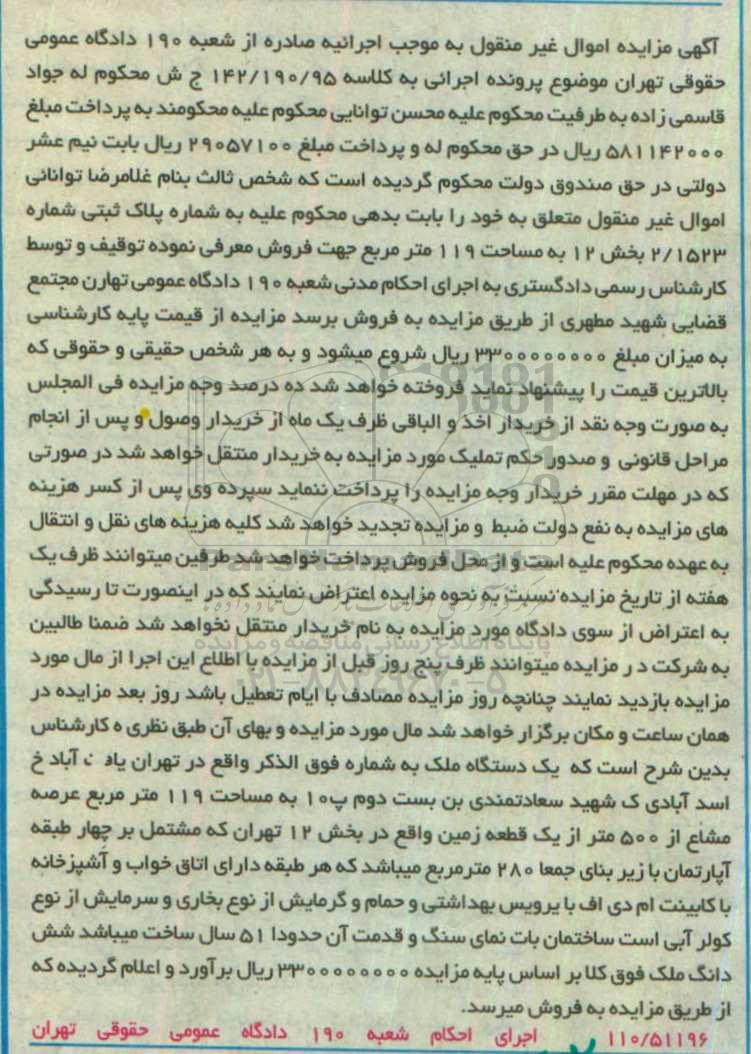 آگهی مزایده اموال غیر منقول به موجب اجرائیه صادره از شعبه ۱۹۰ دادگاه عمومی
حقوقی تهران موضوع پرونده اجرائی به کلاسه ۱۴۲/۱۹۰/۹۵ ج ش محکوم له جواد
قاسمی زاده به طرفیت محکوم علیه محسن توانایی محکوم علیه محکومند به پرداخت مبلغ
۵۸۱۱۴۲۰۰۰ ریال در حق محکوم له و پرداخت مبلغ ۲۹۰۵۷۱۰۰ ریال بابت نیم عشر
دولتی در حق صندوق دولت محکوم گردیده است که شخص ثالث بنام غلامرضا توانائی
اموال غیر منقول متعلق به خود را بابت بدهی محکوم علیه به شماره پلاک ثبتی شماره
۲/۱۵۲۳ بخش ۱۲ به مساحت ۱۱۹ متر مربع جهت فروش معرفی نموده توقیف و توسط
کارشناس رسمی دادگستری به اجرای احکام مدنی شعبه ۱۹۰ دادگاه عمومی تهارن مجتمع
قضایی شهید مطهری از طریق مزایده به فروش برسد مزایده از قیمت پایه کارشناسی
به میزان مبلغ ۳۳۰۰۰۰۰۰۰۰۰ ریال شروع میشود و به هر شخص حقیقی و حقوقی که
بالاترین قیمت را پیشنهاد نماید فروخته خواهد شد ده درصد وجه مزایده فی المجلس
به صورت وجه نقد از خریدار اخذ و الباقی ظرف یک ماه از خریدار وصول و پس از انجام
مراحل قانونی و صدور حکم تملیک مورد مزایده به خریدار منتقل خواهد شد در صورتی
که در مهلت مقرر خریدار وجه مزایده را پرداخت ننماید سپرده وی پس از کسر هزینه
های مزایده به نفع دولت ضبط و مزایده تجدید خواهد شد کلیه هزینه های نقل و انتقال
به عهده محکوم علیه است و از محل فروش پرداخت خواهد شد طرفین میتوانند ظرف یک
هفته از تاریخ مزایده نسبت به نحوه مزایده اعتراض نمایند که در اینصورت تا رسیدگی
به اعتراض از سوی دادگاه مورد مزایده به نام خریدار منتقل نخواهد شد ضمنا طالبین
به شرکت در مزایده میتوانند ظرف پنج روز قبل از مزایده با اطلاع این اجرا از مال مورد
مزایده بازدید نمایند چنانچه روز مزایده مصادف با ایام تعطیل باشد روز بعد مزایده در
همان ساعت و مکان برگزار خواهد شد مال مورد مزایده و بهای آن طبق نظری ه کارشناس
بدین شرح است که یک دستگاه ملک به شماره فوق الذکر واقع در تهران آباد خ
اسد آبادی ک شهید سعادتمندی بن بست دوم پ۱۰ به مساحت ۱۱۹ متر مربع عرصه
مشاع از ۵۰۰ متر از یک قطعه زمین واقع در بخش ۱۲ تهران که مشتمل بر چهار طبقه
آپارتمان با زیر بنای جمعا ۲۸۰ مترمربع میباشد که هر طبقه دارای اتاق خواب و آشپزخانه
با کابینت ام دی اف با یرویس بهداشتی و حمام و گرمایش از نوع بخاری و سرمایش از نوع
کولر آبی است ساختمان بات نمای سنگ و قدمت آن حدودا ۵۱ سال ساخت میباشد شش
دانگ ملک فوق کلا بر اساس پایه مزایده ۳۳۰۰۰۰۰۰۰۰۰ ریال برآورد و اعلام گردیده که
از طریق مزایده به فروش میرسد.
۱۱۰/۵۱۱۹۶ اجرای احکام شعبه ۱۹۰ دادگاه عمومی حقوقی تهران
پایگاه اطلاع رسانی مناقصه و مزایده